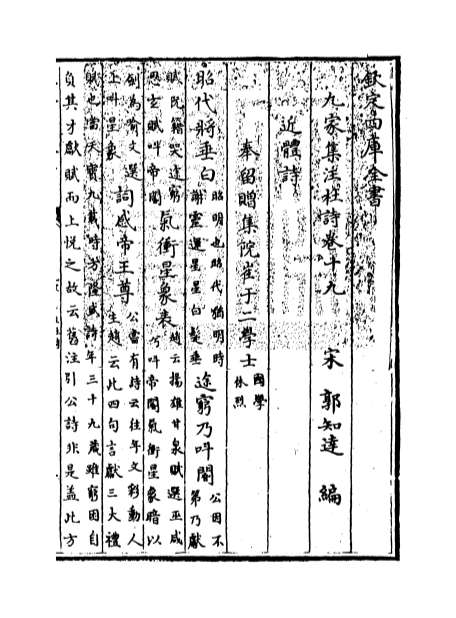 欽定四庫全書
九家集注杜詩卷十九
宋 郭知達 編
近體詩
奉留贈集院崔于二學士 國輔 休烈
昭代將垂白 昭明也昭代猶明時 謝靈運星星白髮垂 途窮乃叫閽 公因不 第乃獻
賦阮籍哭途窮 思玄賦叫帝閽 氣衝星象表 趙云揚雄甘泉賦選巫咸 兮叫帝閽氣衝星象暗以
劍為喻文選 上叫星象 詞感帝王尊 公嘗有詩云往年文彩動人 主趙云此四句言獻三大禮
賦也當天寶九載時方隆盛時年三十九歲雖窮困自
負其才獻賦而上悦之故云舊注引公詩非是蓋此方